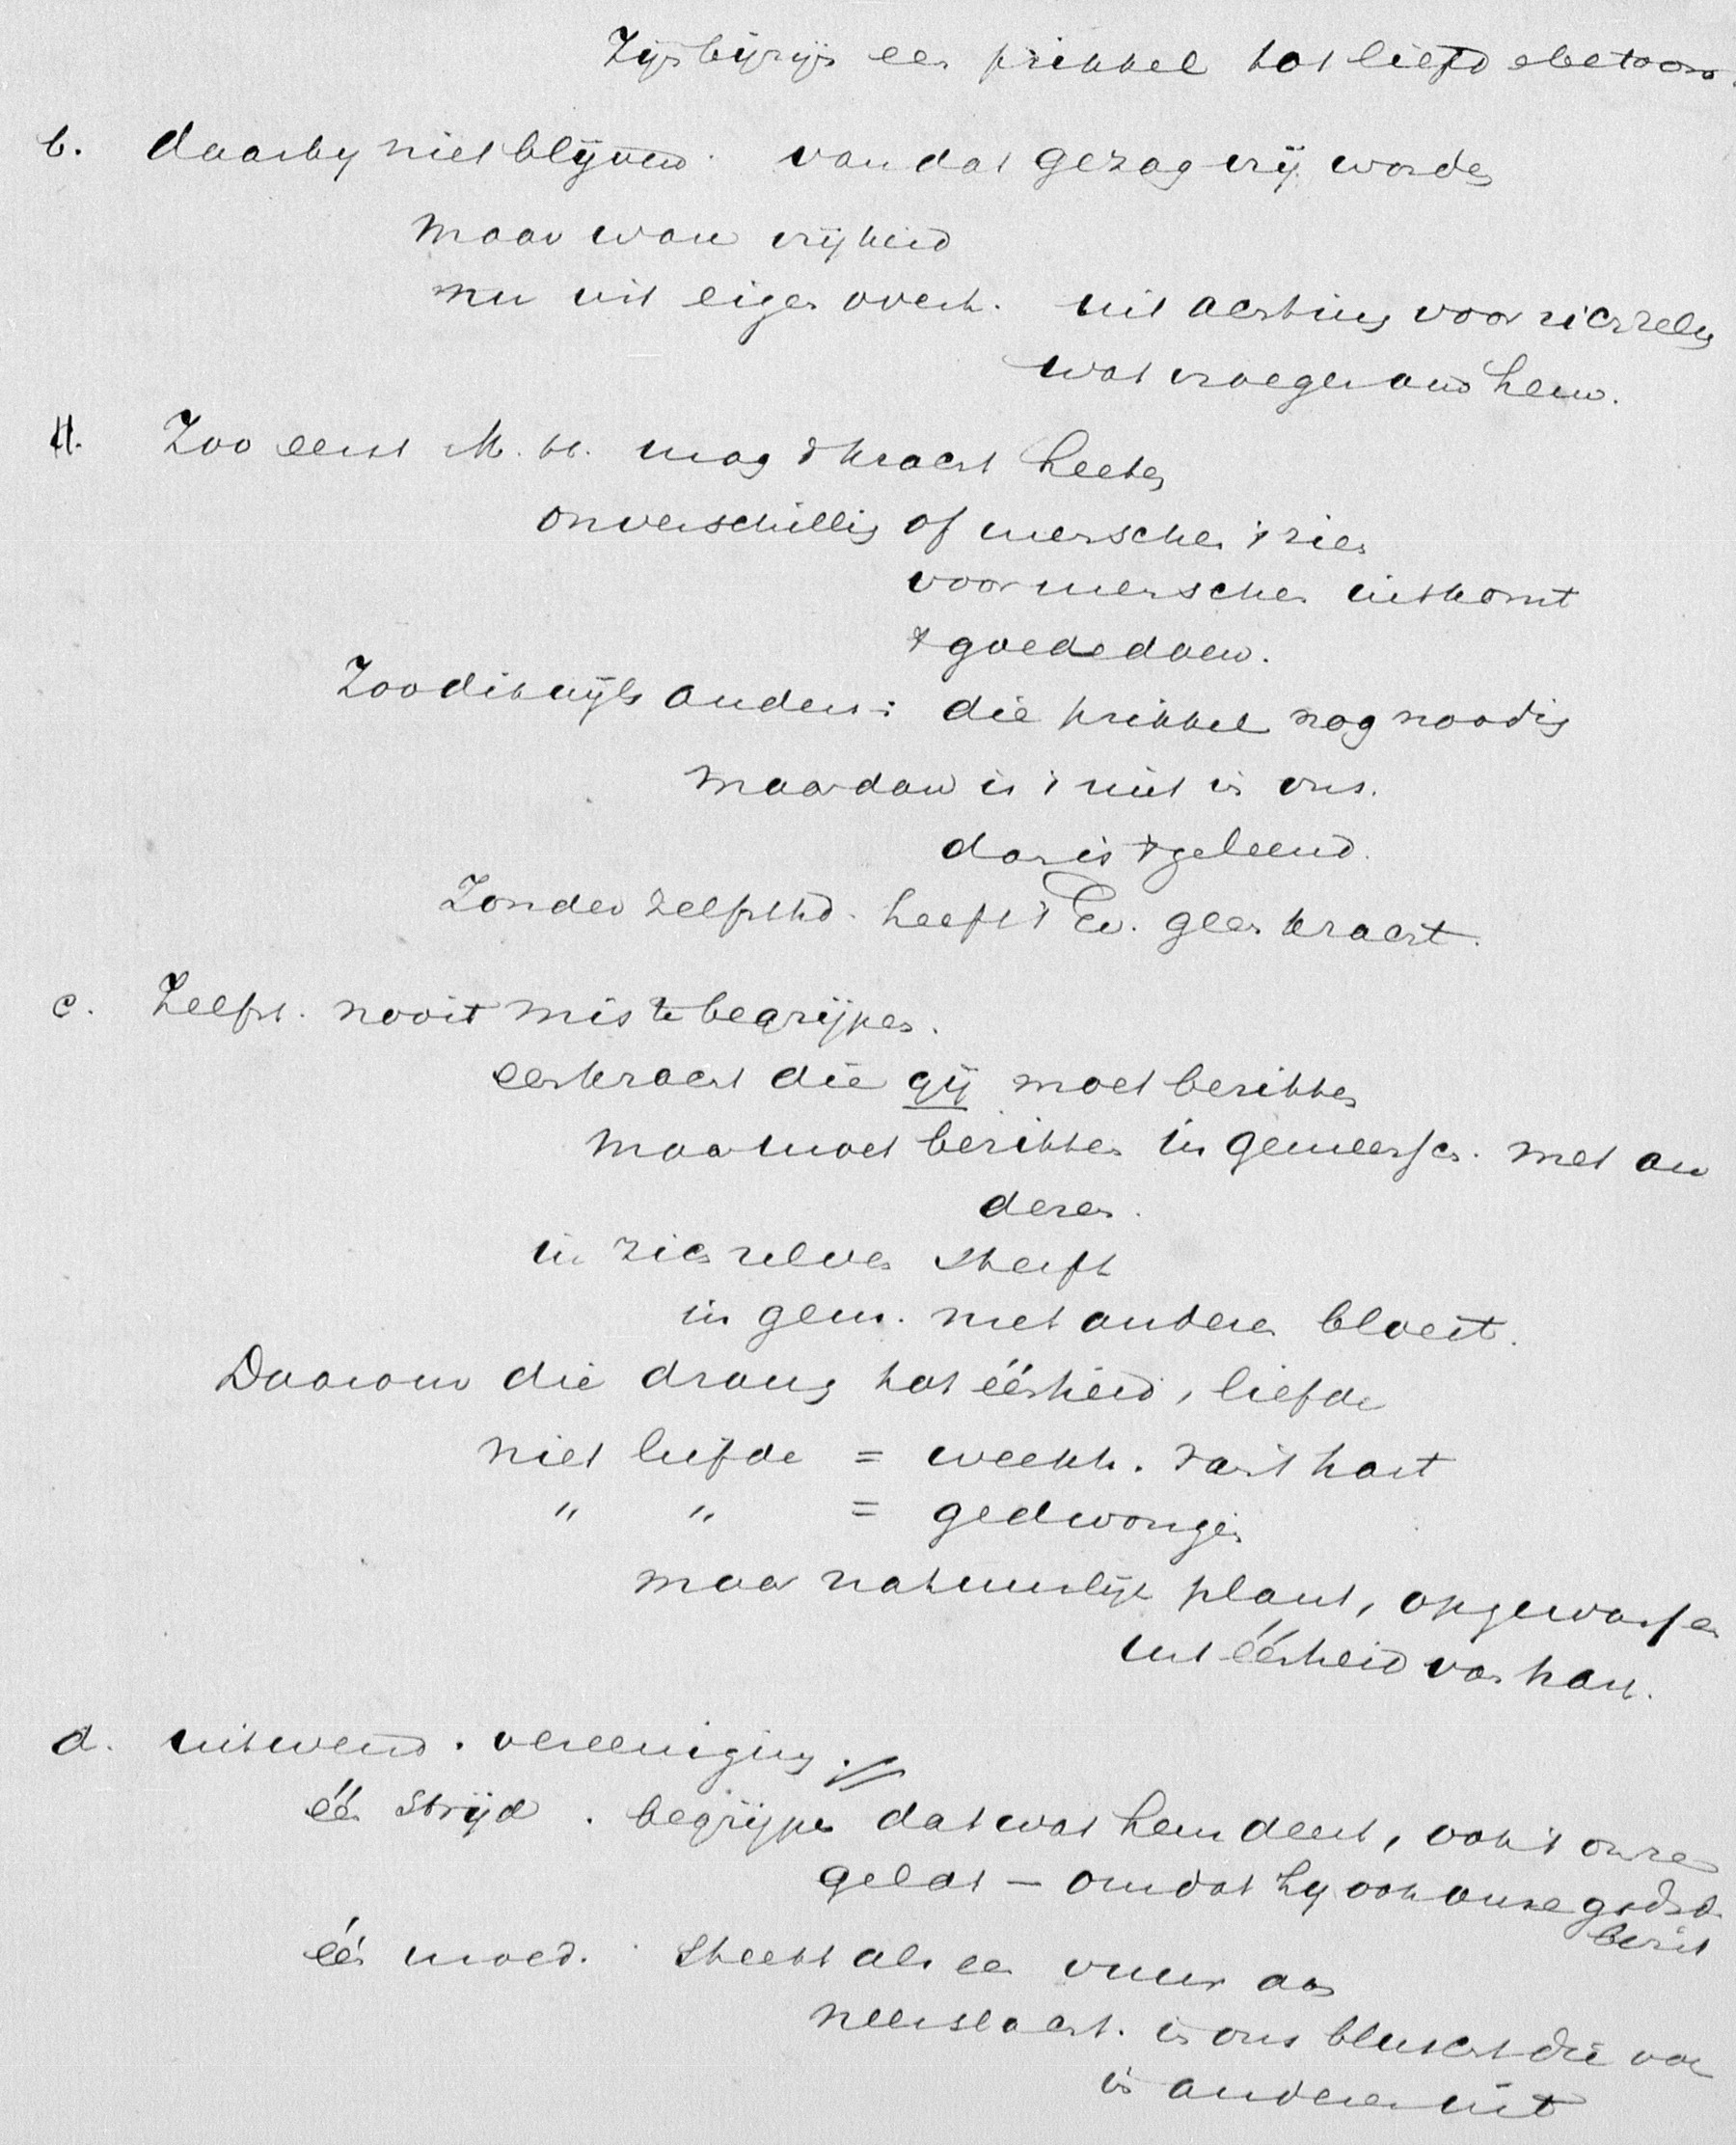 Zijn bijzijn een prikkel tot liefdebetoon.
b. daarby niet blijvend. van dat gezag vrij worden
maar ware vrijheid
nu uit eigen overt. uit achting voor zichzelf
wat vroeger aus hem.
H. Zoo eerst M. H. mag 't kracht heeten
onverschillig of menschen 't zien
voor menschen uitkomt
't goede doen.
Zoo dikwijls anders: die prikkel nog noodig
maar dan is 't niet in ons.
dan is 't geleend.
Zonder zelfsthd. heeft 't Ev. geen kracht.
c. Zelfst. nooit mis te begrijpen.
een kracht die gij moet bezitten
maar moet bezitten in gemeensch. met an
deren.
in zich zelven sterft
in gem. met anderen bloeit.
Daarom die drang tot éénheid, liefde
niet liefde = weekh. van hart
" " = gedwongen
maar natuurlijk plant, opgewassen
uit éénheid van hart.
d. uitwend. vereeniging.
één strijd. begrijpen dat wat hem deert, ook 't onze
geldt — omdat hy ook onze godsd.
bezit
één moed. steekt als een vuur aan
neerslacht. in ons bluscht die van
in anderen uit